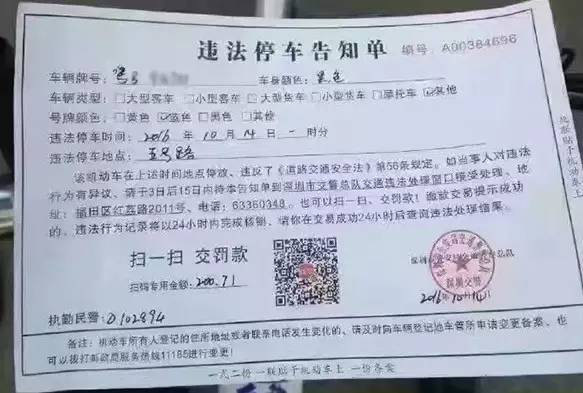 违法停车告知单 编号：A00384696
车辆牌号： 车身颜色：黑色
车辆类型：□大型客车 □小型客车 □大型货车 □小型货车 □摩托车 ☑其他
号牌颜色：□黄色 ☑蓝色 □黑色 □其他
违法停车时间：2016年10月14日一时分
违法停车地点：
该机动车在上述时间地点停放，违反了《道路交通安全法》第56条规定。如当事人对违法
行为有异议，请于3日后15日内持本告知单到深圳市交警总队交通违法处理窗口接受处理、地
址：福田区红荔路2011号、电话：63360348。也可以扫一扫，交罚款！缴款交易提示成功
的，违法行为记录将以24小时内完成核销，请你在交易成功24小时后查询违法处理结果。
扫一扫 交罚款
扫码专用金额：200.71
深圳交警
2016年10月14日
执勤民警：0102894
备注：机动车所有人登记的住所地址或者联系电话发生变化的、请及时向车辆登记地车管所申请变更备案、也
可以拨打邮政局服务热线11185进行变更！
一式二份一联贴于机动车上 一份备案
此联贴于机动车上